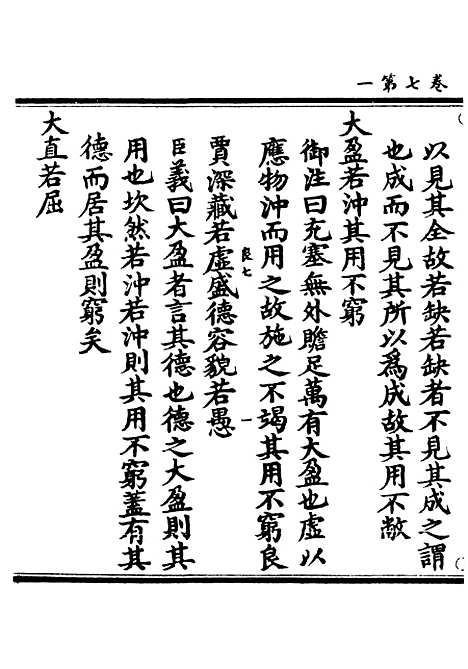 卷七第一
以見其全故若缺若缺者不見其成之謂
也成而不見其所以爲成故其用不敝
大盈若沖其用不窮
御注曰充塞無外贍足萬有大盈也虛以
應物沖而用之故施之不竭其用不窮良
賈深藏若虛盛德容貌若愚
良七
一
臣義曰大盈者言其德也德之大盈則其
用也坎然若沖若沖則其用不窮蓋有其
德而居其盈則窮矣
大直若屈